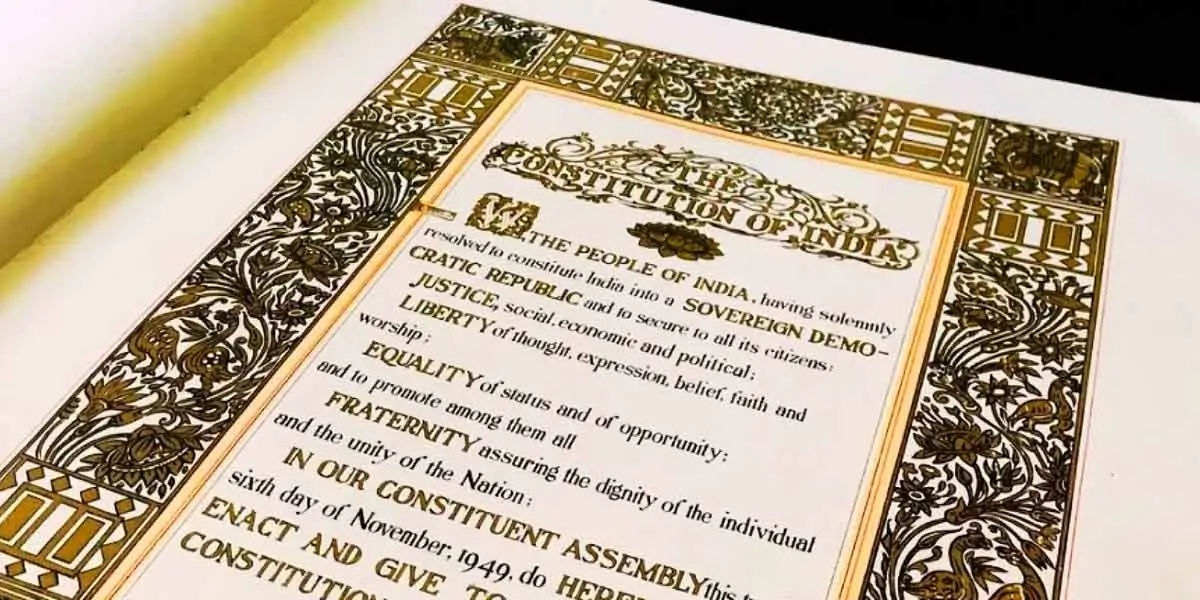 THE
CONSTITUTION OF INDIA
WE, THE PEOPLE OF INDIA, having solemnly
resolved to constitute India into a SOVEREIGN DEMO-
CRATIC REPUBLIC and to secure to all its citizens:
JUSTICE, social, economic and political;
LIBERTY of thought, expression, belief, faith and
worship;
EQUALITY of status and of opportunity;
and to promote among them all
FRATERNITY assuring the dignity of the individual
and the unity of the Nation;
IN OUR CONSTITUENT ASSEMBLY this
sixth day of November, 1949, do
ENACT AND GIVE